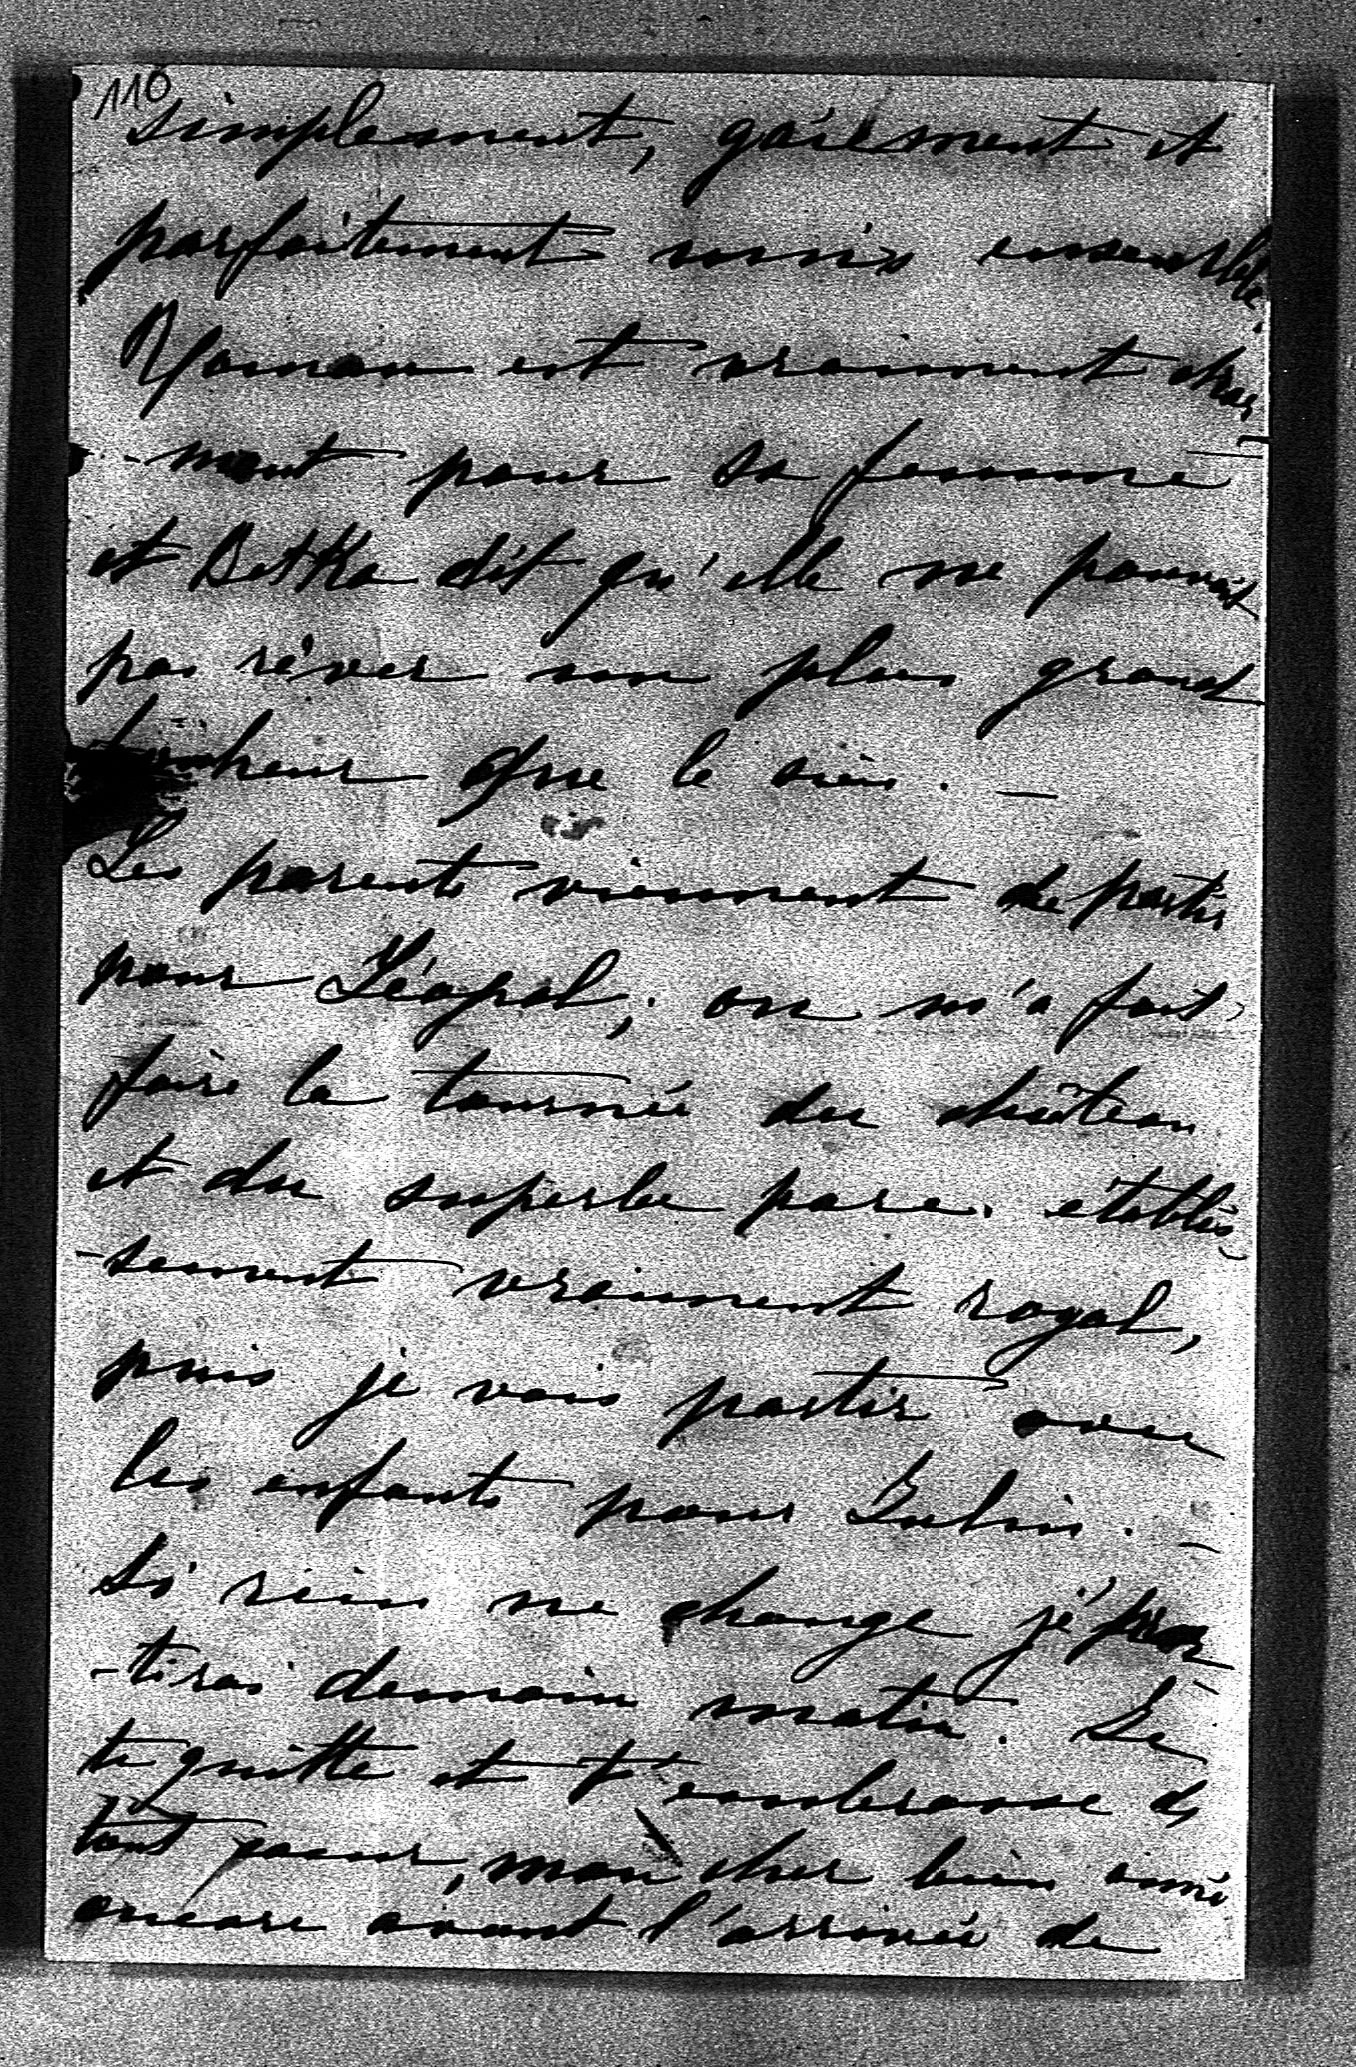 110
simplement, gaiement et
parfaitement unis ensemble.
Roman est vraiment char
-mant pour sa femme
et Betka dit qu'elle ne pouvait
pas rêver un plus grand
bonheur que le sien. —
Les parents viennent de partir
pour Léopol; on m'a fait
faire la tournée du château
et du superbe parc. établis
-sement vraiment royal,
puis je vais partir avec
les enfants pour Lubin. —
Si rien ne change je par
-tirai demain matin. Je
te quitte et t'embrasse de
tout coeur, mon cher bien aimé
encore avant l'arrivée de